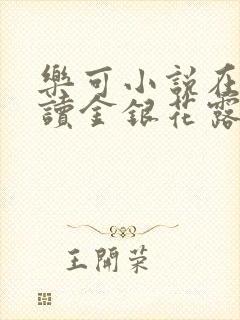 樂可小說在
讀金銀花露
王開荣